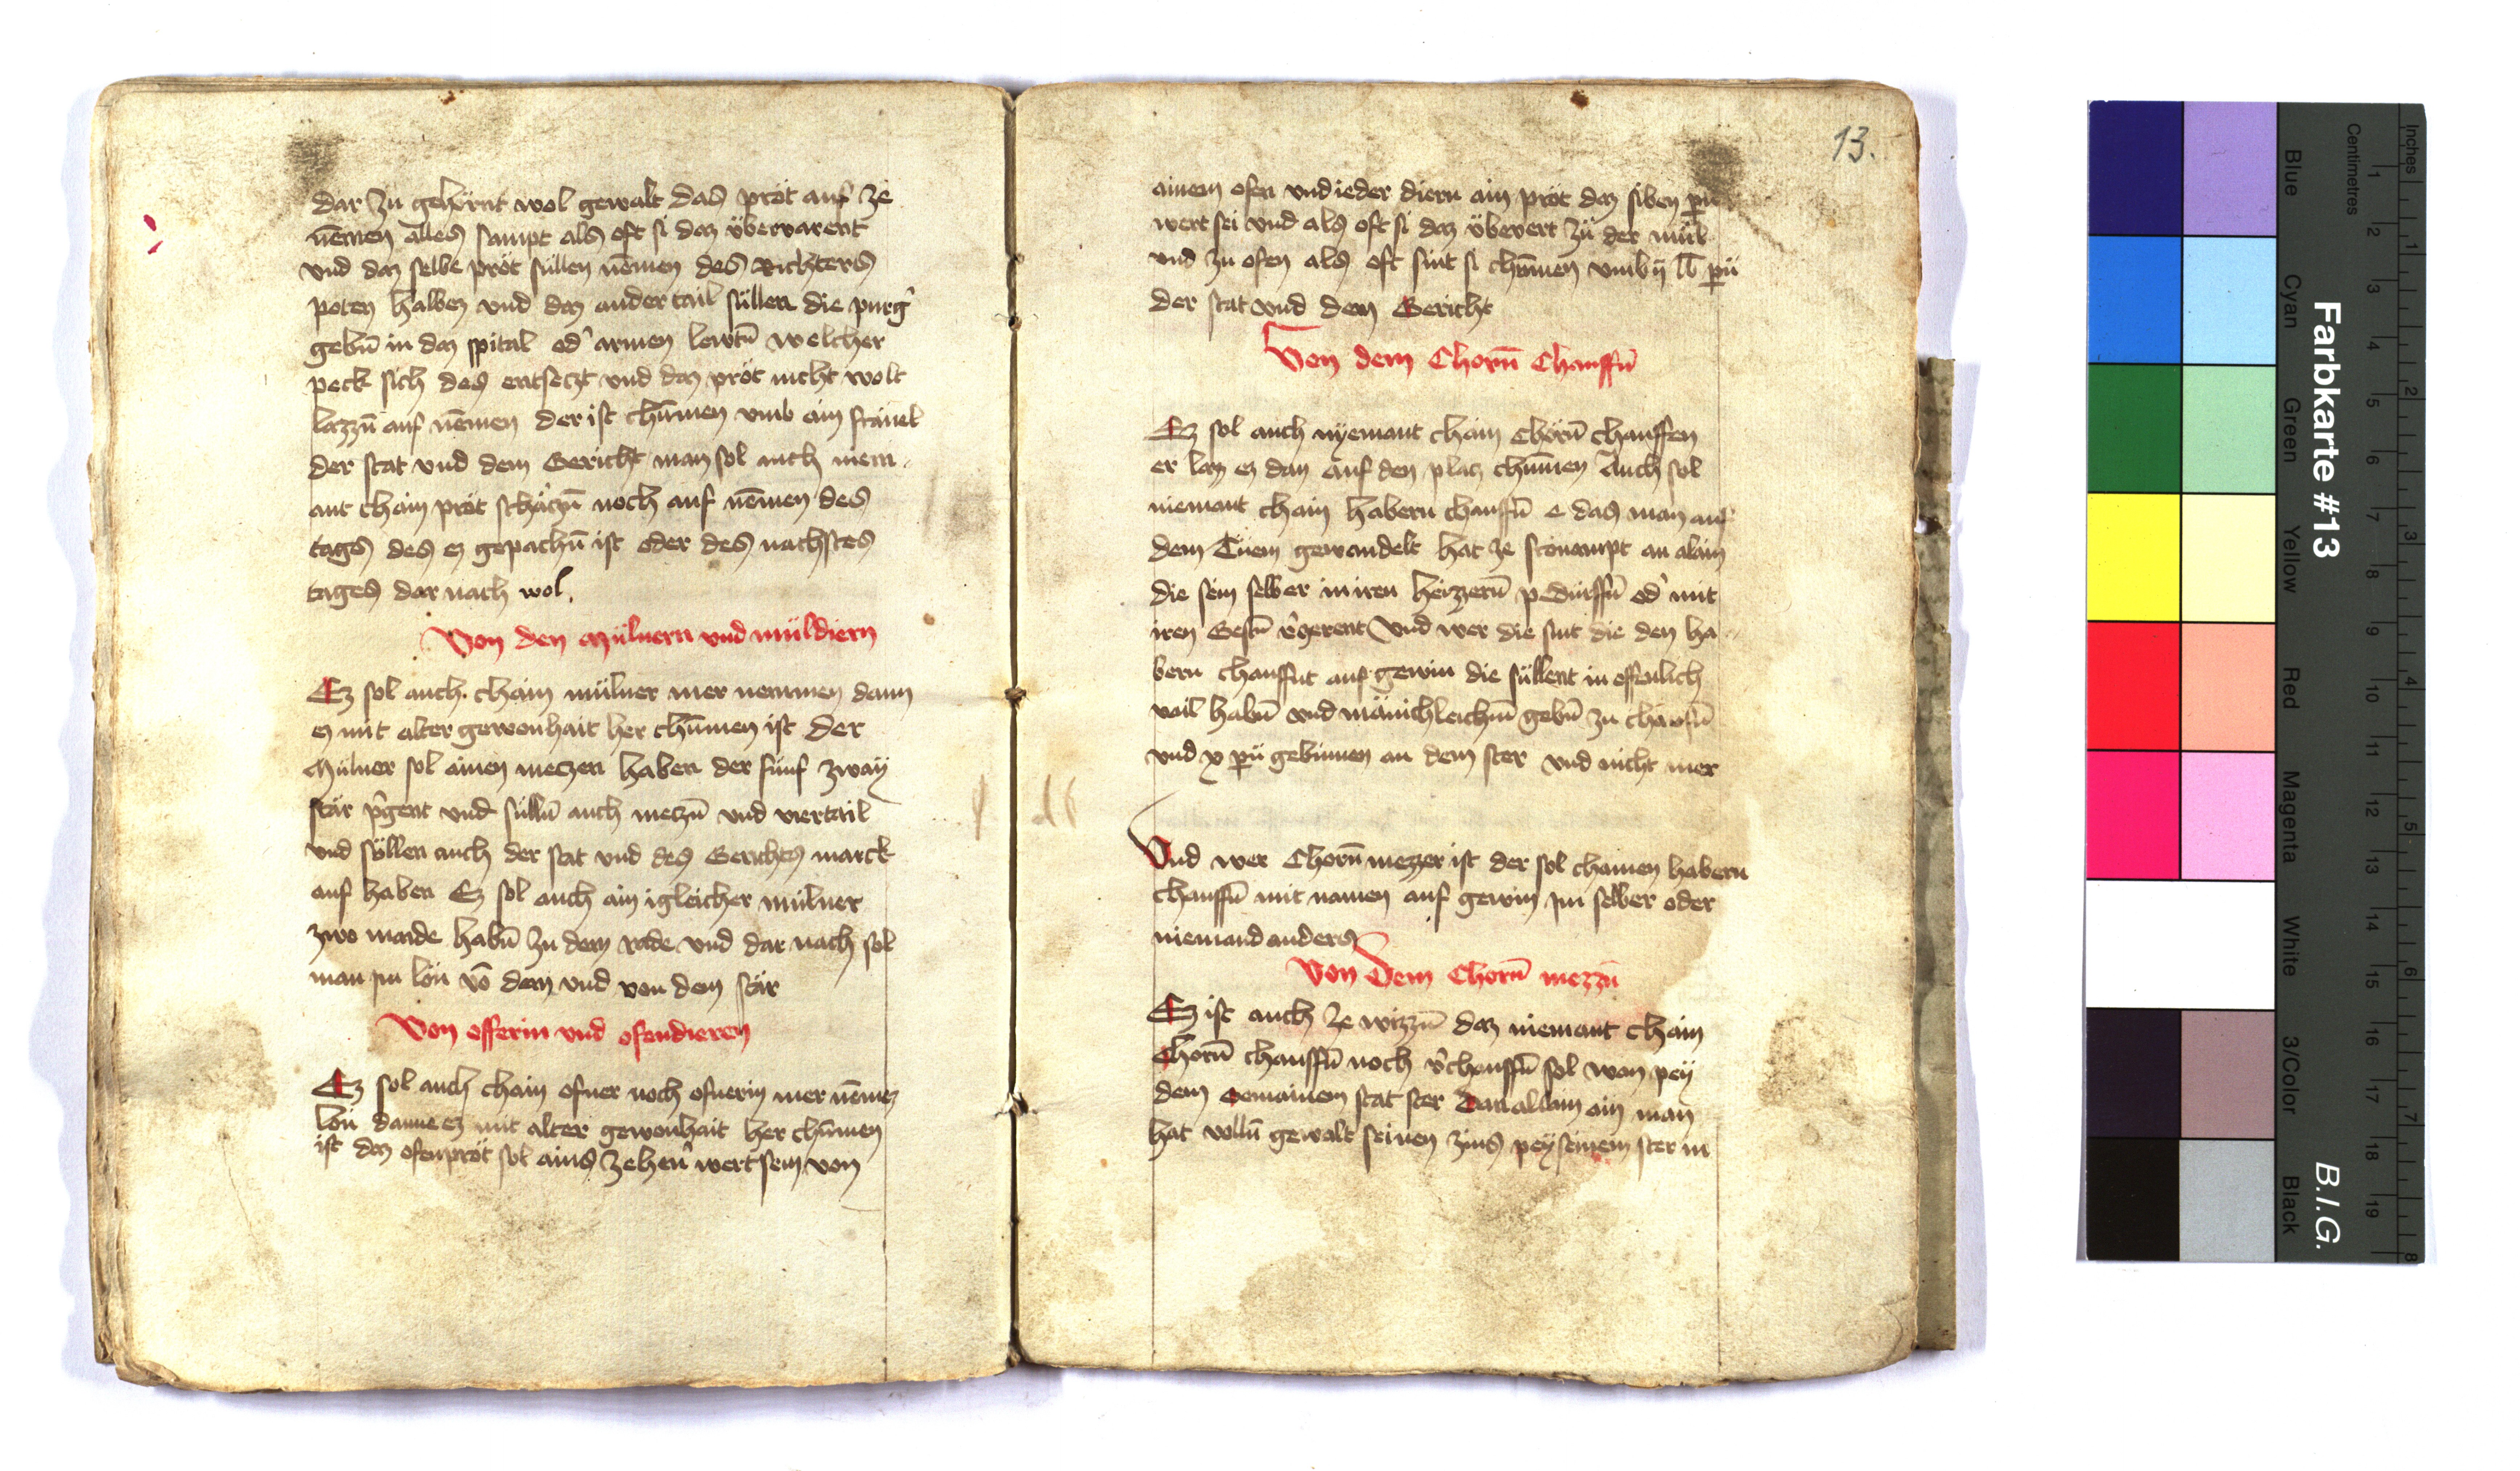 dar zu gehörnt wol gewalt das pröt auf ze
nēmen alles sampt als oft si daz übervarent
vnd daz selbe pröt süllen nēmen des Richters
poten halbez vnd daz ander tail süllen die purg̉
gebn̄ in daz spital od̉ armen lewtn̄ welcher
peck sich des entseczt vnd daz pröt nicht wolt
lazzn̄ auf nēmen der ist chūmen vmb ain
der stat vnd dem Gericht man sol auch niem
ant chain pröt schäczn̄ noch auf nēmen des
tags des ez gepachn̄ ist oder des nachstes
tages dar nach wol.
Von den Mülnern vnd müldiern
Ez sol auch chain mülner mer nemmen dann
ez mit alter gewonhait her chūmen ist Der
Mülner sol ainen meczen haben der fünf zway
stär p̉gent vnd sülln̄ auch meczn̄ vnd viertail
vnd söllen auch der stat vnd des Gerichts marck
auf haben Ez sol auch ain igleicher mülner
zwo maide habn̄ zu dem rade vnd dar nach sol
man im lön vō dem vnd von dem stär
Von offerin vnd ofendieren
Ez sol auch chain ofner noch ofnerin mer nēmez
lön danne ez mit alter gewonhait her chūmen
ist daz ofenpröt sol ains zehen̉ wert sein von
13.
ainem ofen vnd ieder diern ain pröt daz siben pn̄
wert sei vnd als oft si daz übervert zü der mül
vnd zu ofen als oft sint si chōmen vmb ij lb pn̄
der stat vnd dem Gericht
Von dem Chorn̄ Chauffn̄
Ez sol auch nyemant chain Chörn̄ chauffen
er laz ez dan auf den placz chūmen Auch sol
niemant chain habern chauffn̄ e das man auf
dem Tüem gewandelt hat ze an alain
die sein selber in iren heüzzern̄ pedürffn̄ od̉ mit
iren Gestn̄ v̉zerent Vnd wer die sint die den ha
bern chauffnt auf gewin die süllent in offenlich
vail habn̄ vnd mänichleichm̄ gebn̄ zu chauffn̄
vnd x pn̄ gebinnen an dem ster vnd nicht mer
Vnd wer Chorn̄ mezzer ist der sol chainen habern
chauffn̄ mit namen auf gewin im selber oder
niemand anders
Von Dem Chorn̄ mezzn̄
Ez ist auch ze wizzn̄ daz niemant chain
Chorn̄ chauffn̄ noch v̉chauffn̄ sol wan pey
dem Gemainem stat ster Dan allain ain man
hat volln̄ gewalt seinen zins pey seinem ster in
Farbkarte #13
B.I.G.
Blue
Cyan
Green
Yellow
Red
Magenta
White
3/Color
Black
Centimetres
Inches
1 2 3 4 5 6 7 8 9 10 11 12 13 14 15 16 17 18 19
1 2 3 4 5 6 7 8